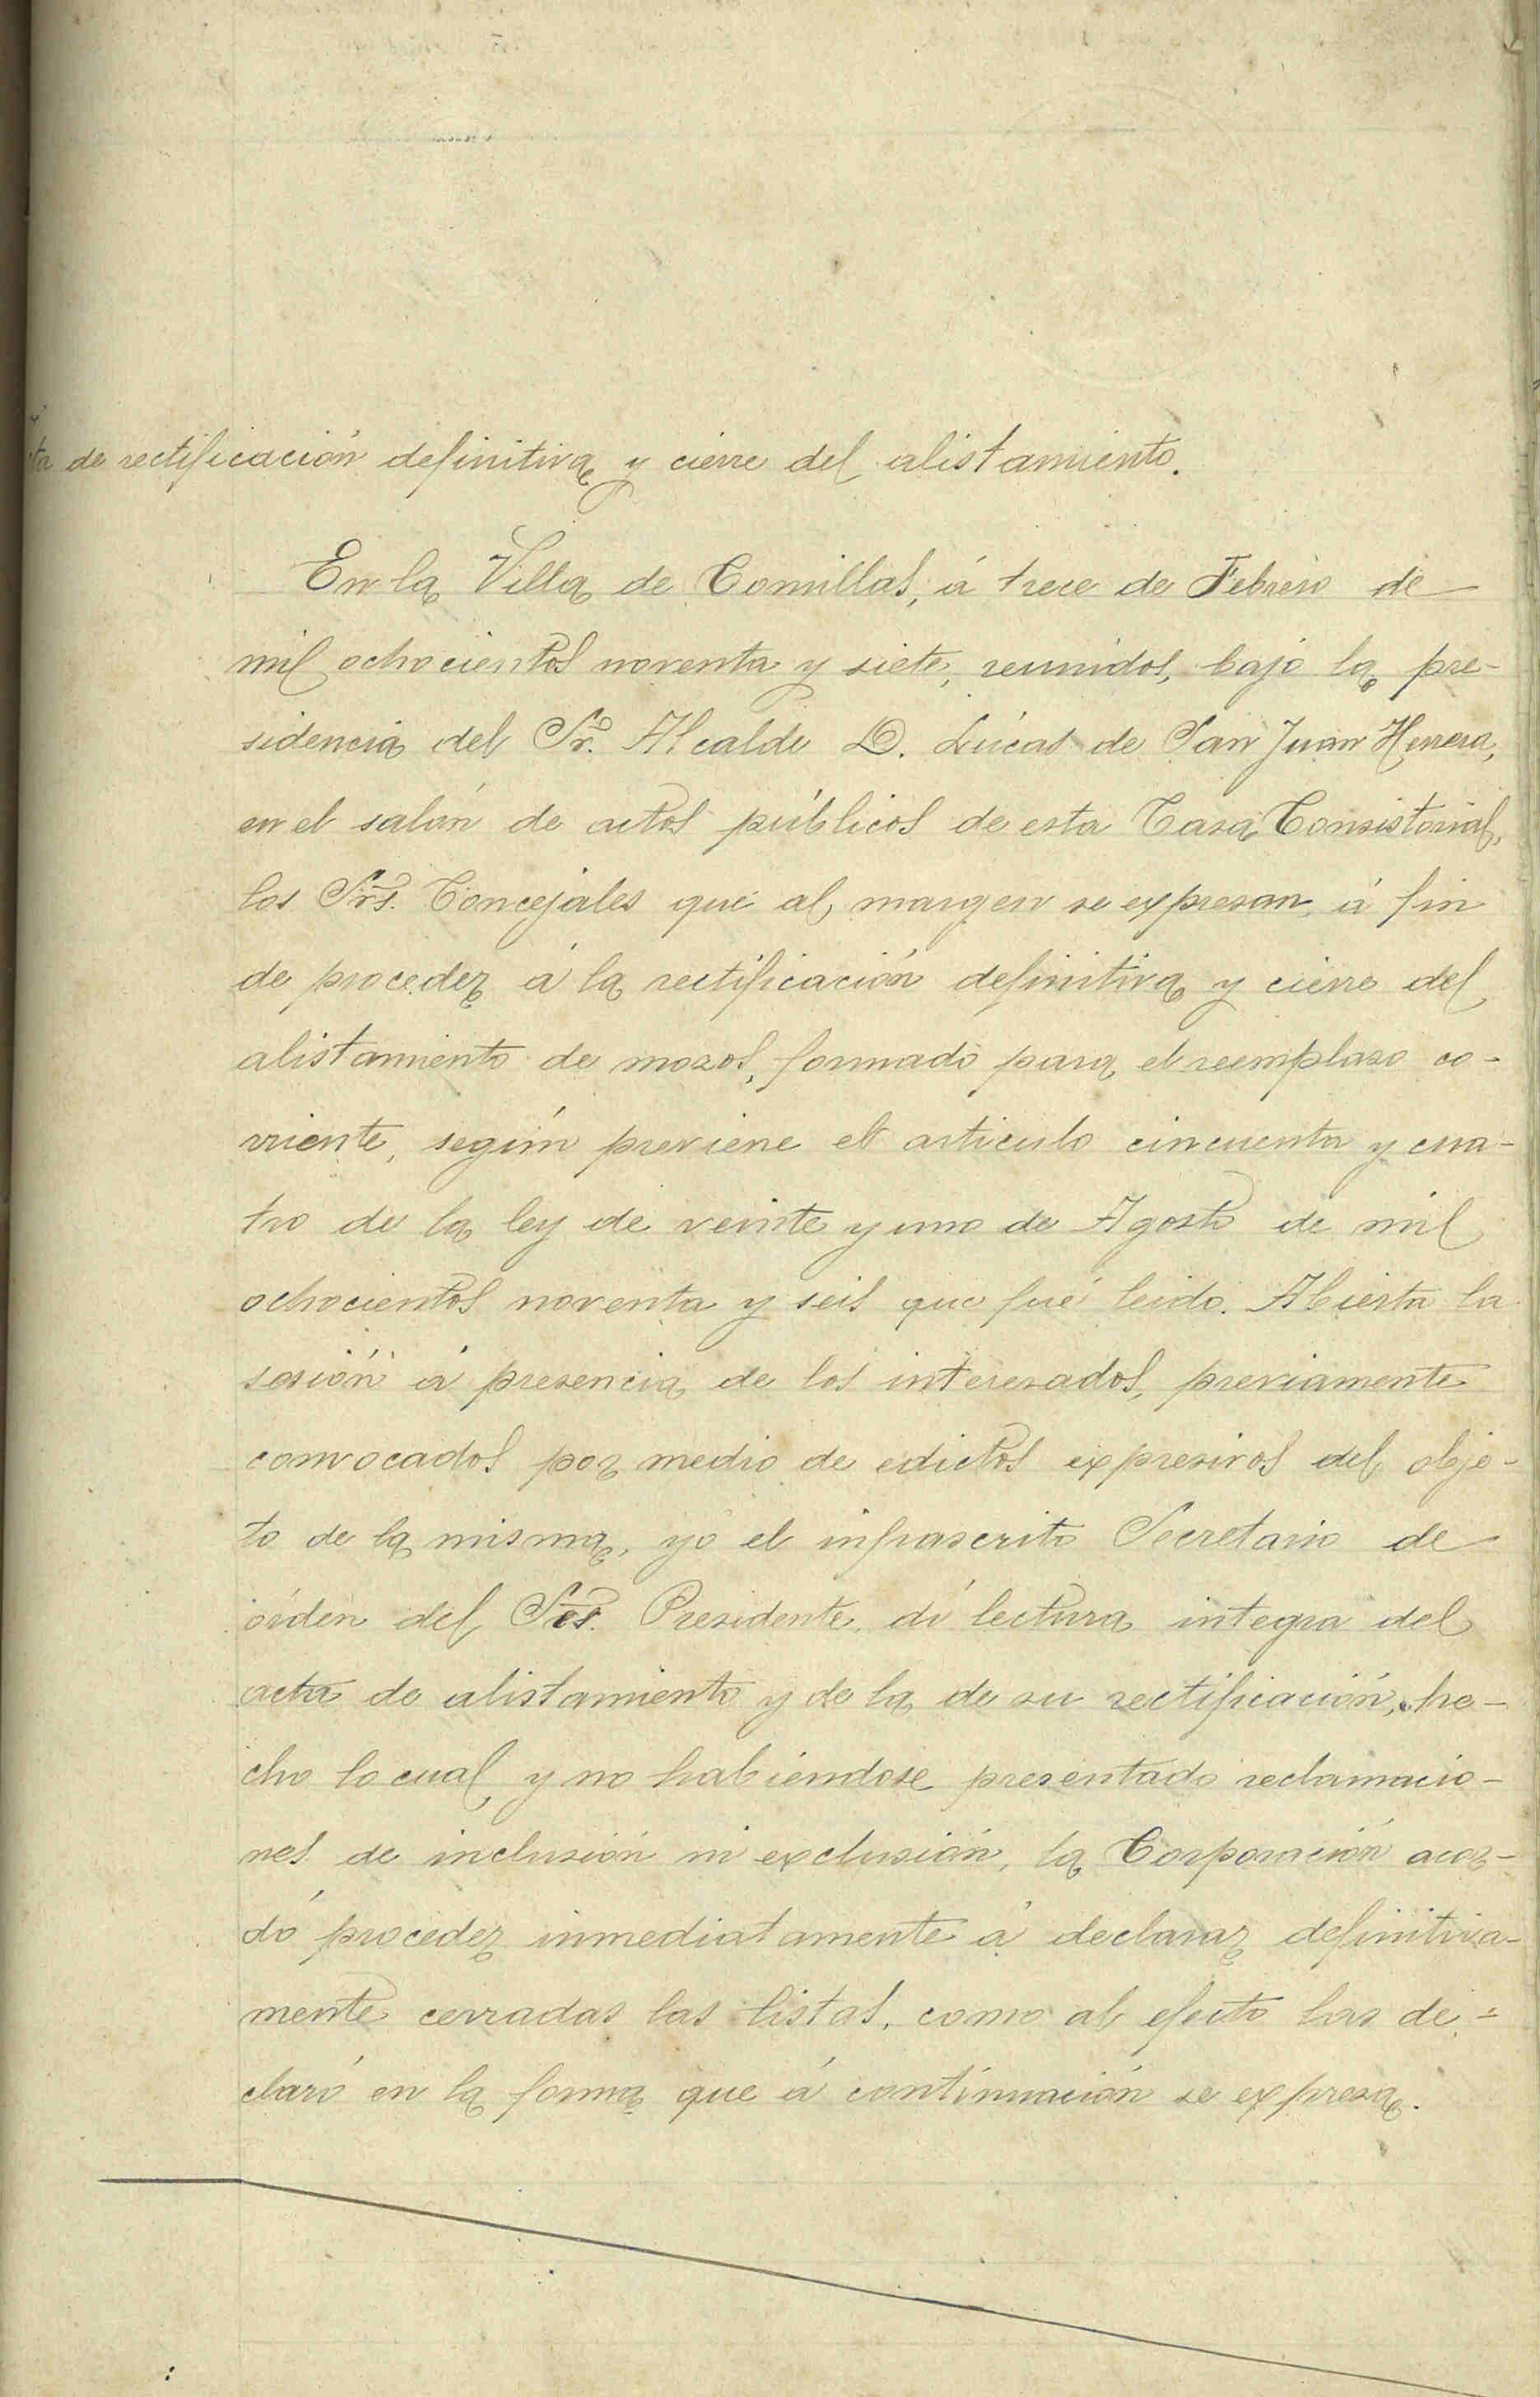 ta de rectificación definitiva y cierre del alistamiento.
En la Villa de Comillas, á trece de Febrero de
mil ochocientos noventa y siete, reunidos, bajo la pre-
sidencia del Sr. Alcalde D. Lúcas de San Juan Herrera,
en el salón de actos públicos de esta Casa Consistorial,
los Srs. Concejales que al margen se expresan, á fin
de proceder á la rectificación definitiva y cierre del
alistamiento de mozos, formado para el reemplazo co-
rriente, según previene el articulo cincuenta y cua-
tro de la ley de veinte y uno de Agosto de mil
ochocientos noventa y seis que fué leido. Abierta la
sesión á presencia de los interesados, previamente
convocados por medio de edictos expresivos del obje-
to de la misma, yo el infrascrito Secretario de
órden del Sr. Presidente, dí lectura integra del
acta de alistamiento y de la de su rectificación, he-
cho lo cual, y no habiéndose presentado reclamacio-
nes de inclusión ni exclusión, la Corporación acor-
dó proceder inmediatamente á declarar definitiva-
mente cerradas las listas, como al efecto las de-
claró en la forma que á continuación se expresa.